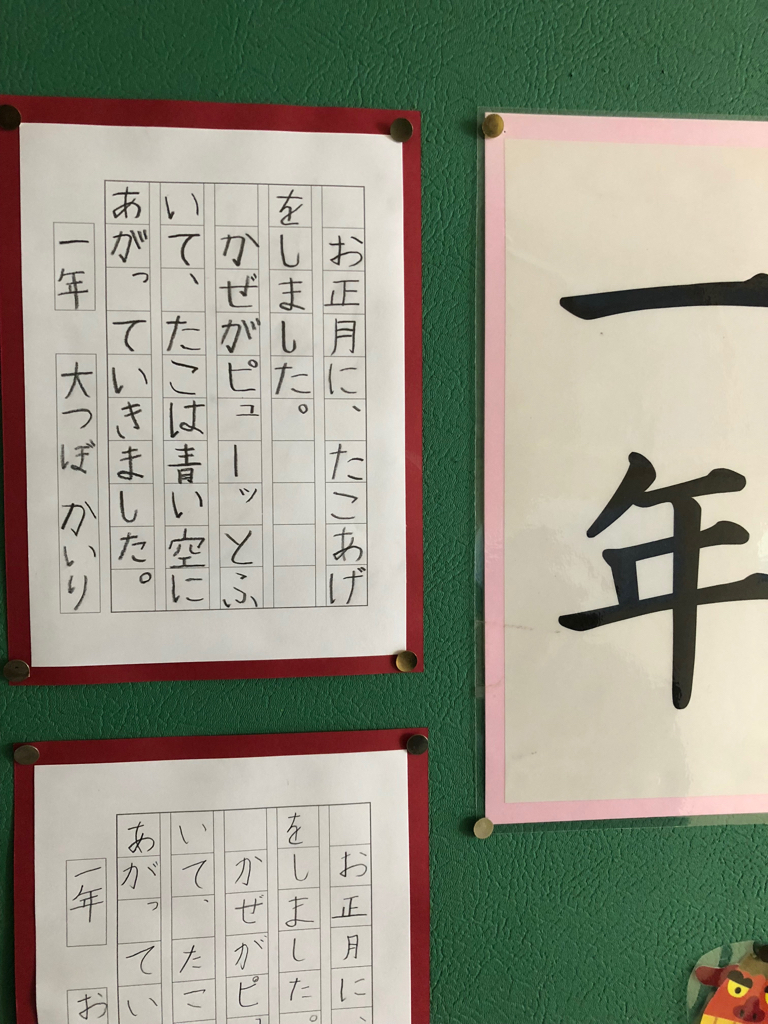 一年
お正月に、たこあげ
をしました。
かぜがピューッとふ
いて、たこは青い空に
あがっていきました。
一年 大つぼ かいり
お正月に、
をしました。
かぜがピ
いて、たこ
あがってい
一年 お